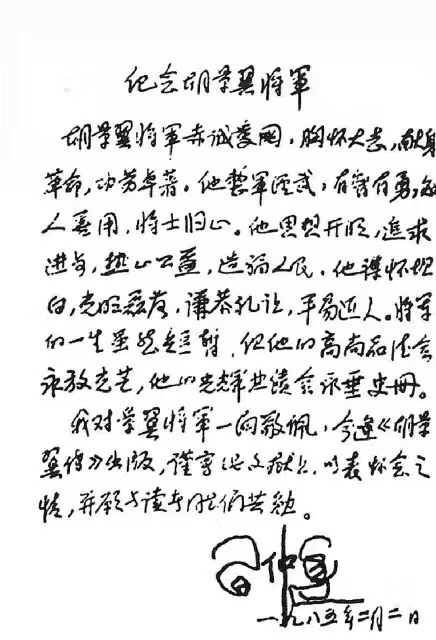 纪念胡景翼将军
胡景翼将军赤诚爱国，胸怀大志，献身
革命，功劳卓著。他整军经武，有智有勇，知
人善用，将士归心。他思想开明，追求
进步，热心公益，造福人民。他襟怀坦
白，光明磊落，谦恭礼让，平易近人。将军
的一生虽然是短暂，但他的高尚品德会
永放光芒，他的光辉业绩会永垂史册。
我对景翼将军一向敬佩，今逢《胡景
翼传》出版，谨写此文献上，以表怀念之
情，并愿与读者同志们共勉。
习仲勋
一九八五年二月二日